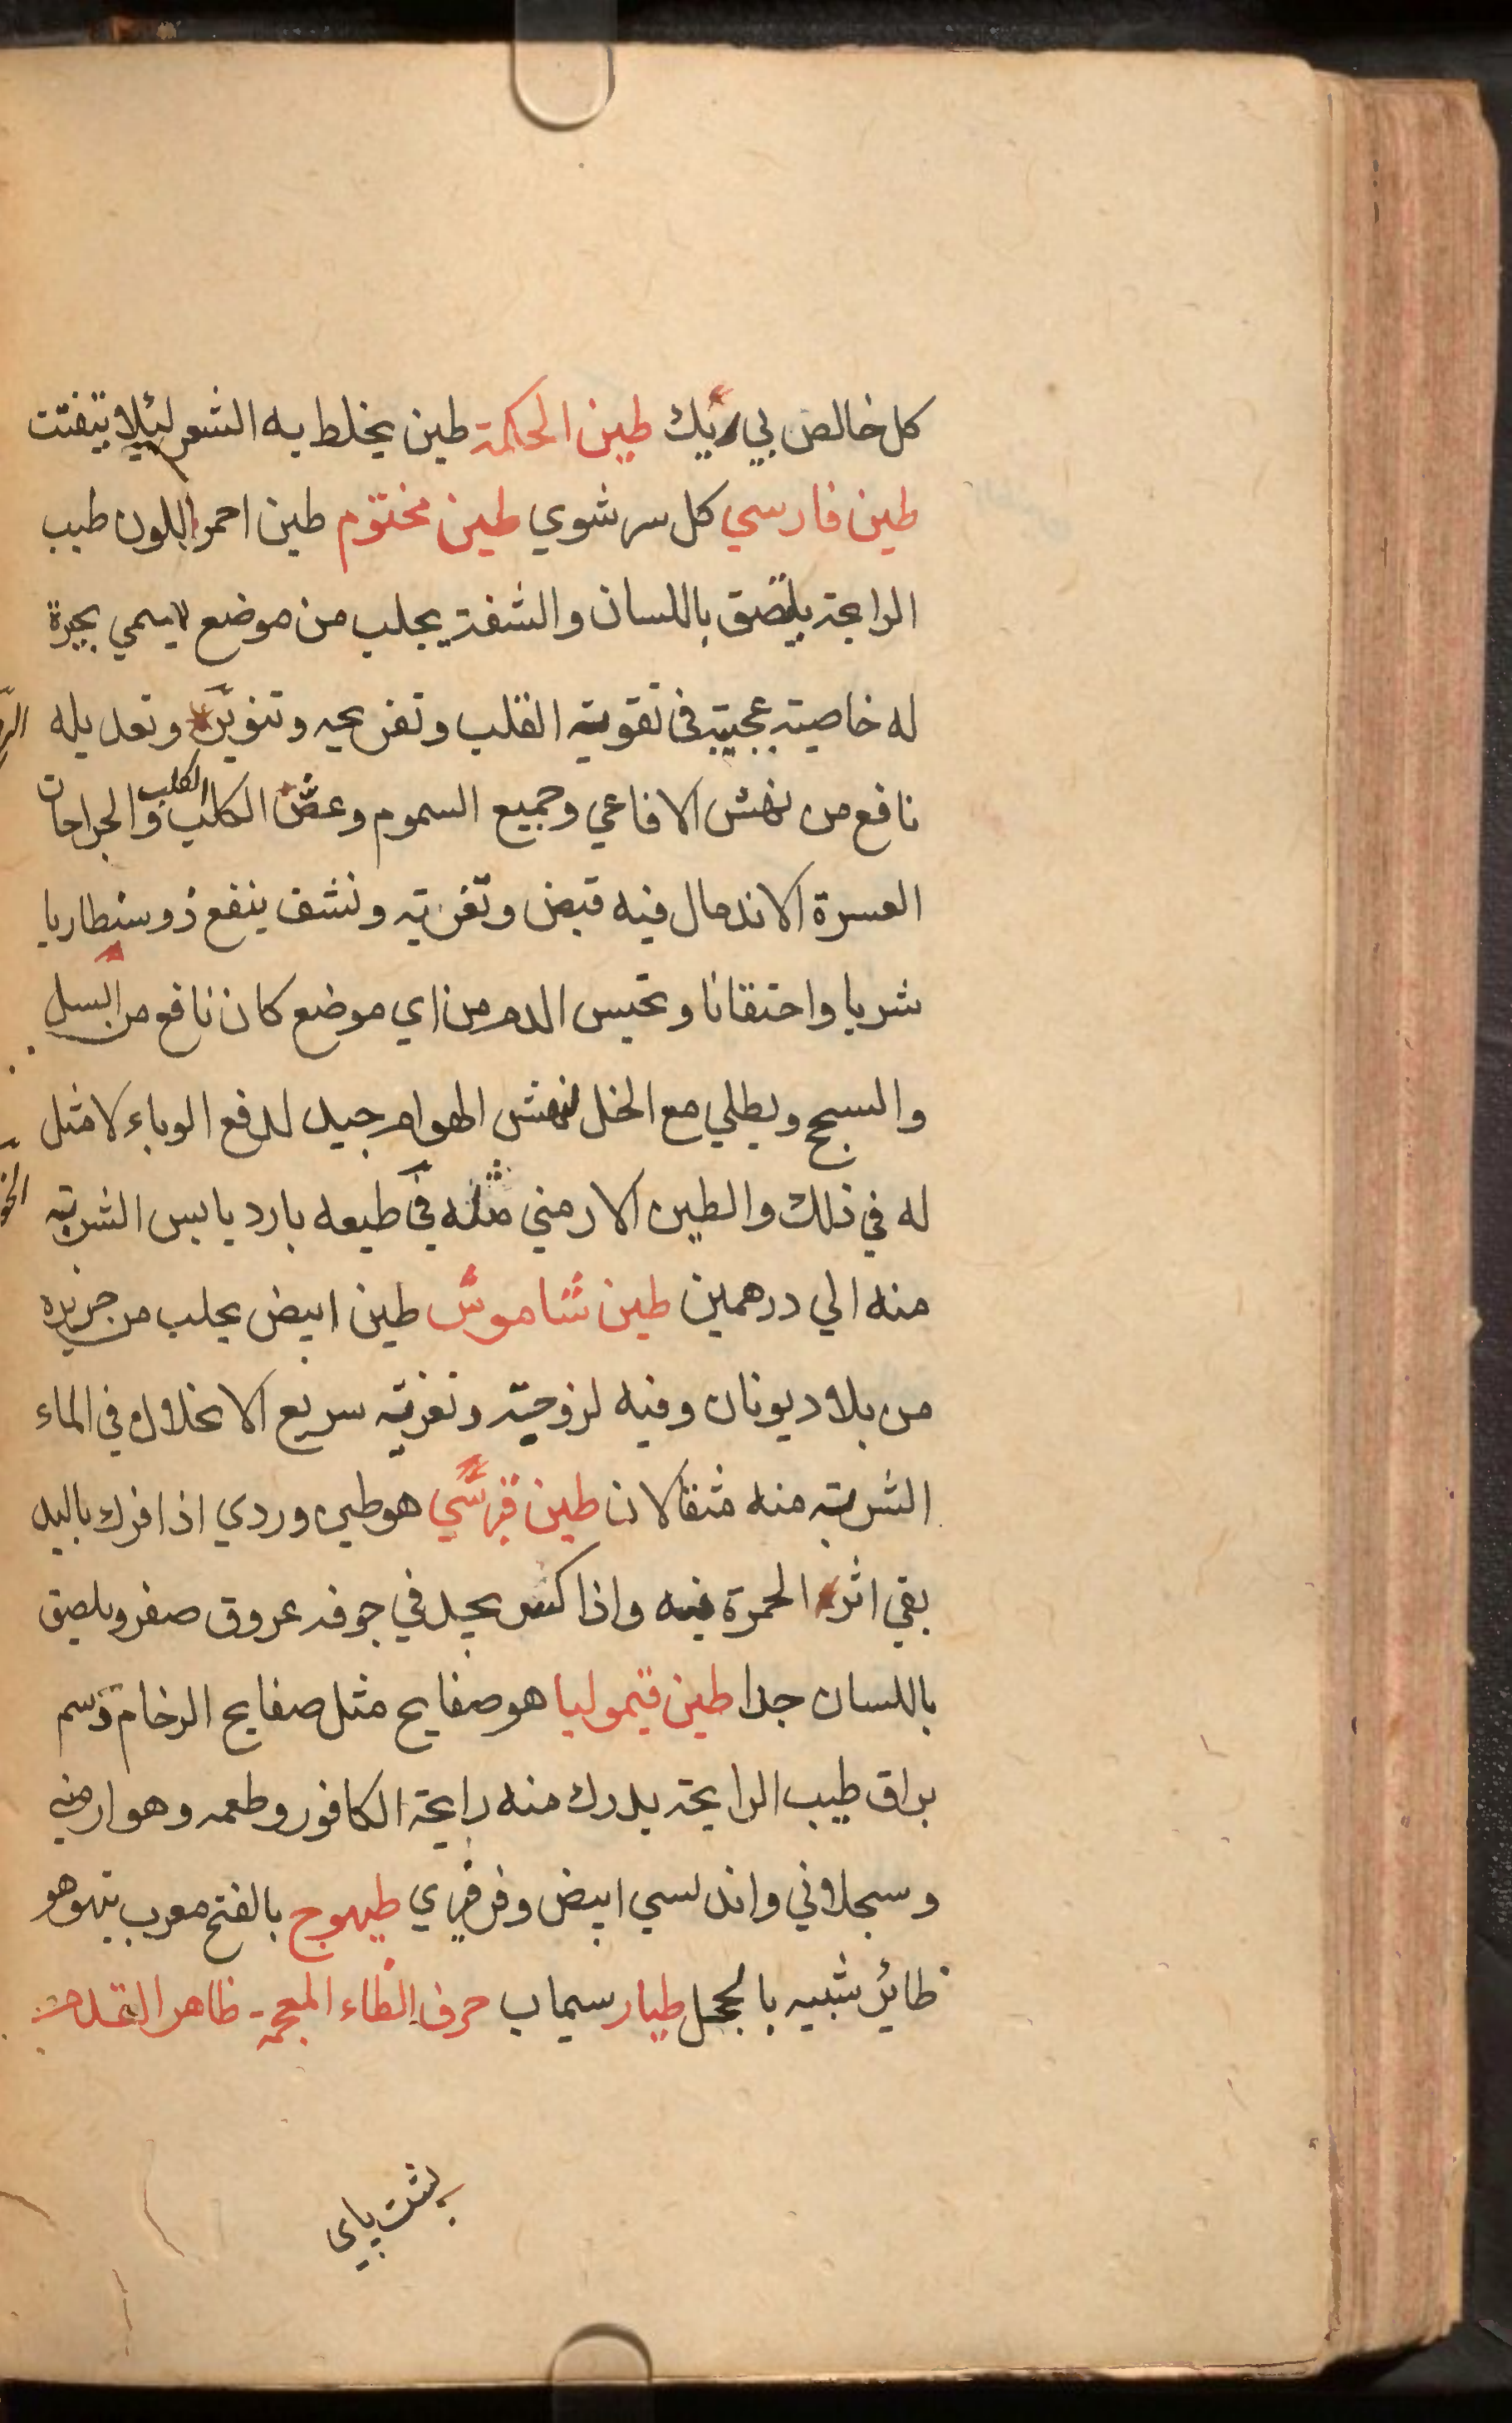 كل خالص بي ريك طين الحكمة طين يخلط به الشعر لئلا يتفتت
طين فارسي كل سرشوي طين مختوم طين احمر اللون طيب
الرايحة يلتصق باللسان والشفة يجلب من موضع يسمي بحيرة
له خاصية عجيبة في تقوية القلب وتفريحه وتنويره وتعديله
نافع من نهش الافاعي وجميع السموم وعض الكلب الكلب والجراحات
العسرة الاندمال فيه قبض وتغرية ونشف ينفع ذوسنطاريا
شربا واحتقانا وتحبس الدم من اي موضع كان نافع من السل
والسحج ويطلي مع الخل لنهش الهوام جيد لدفع الوباء لا مثل
له في ذلك والطين الارمني مثله في طبعه بارد يابس الشربة
منه الي درهمين طين شاموس طين ابيض يجلب من جزيره
من بلاد يونان وفيه لزوجية وتغرية سريع الانحلال في الماء
الشربة منه مثقالان طين قبرسي هو طين وردي اذا فرك باليد
بقي اثر الحمرة فيه واذا كسر يجد في جوفه عروق صفر ويلصق
باللسان جدا طين قيموليا هو صفايح مثل صفايح الرخام دسم
براق طيب الرايحة يدرك منه رايحة الكافور وطعمه وهو ارمني
وسجلاني واندلسي ابيض وفرفري طيهوج بالفتح معرب تيهو هو
طائر شبيه بالحجل طيار سيماب حرف الظاء المعجمة ظاهر القدم
پشت پاى